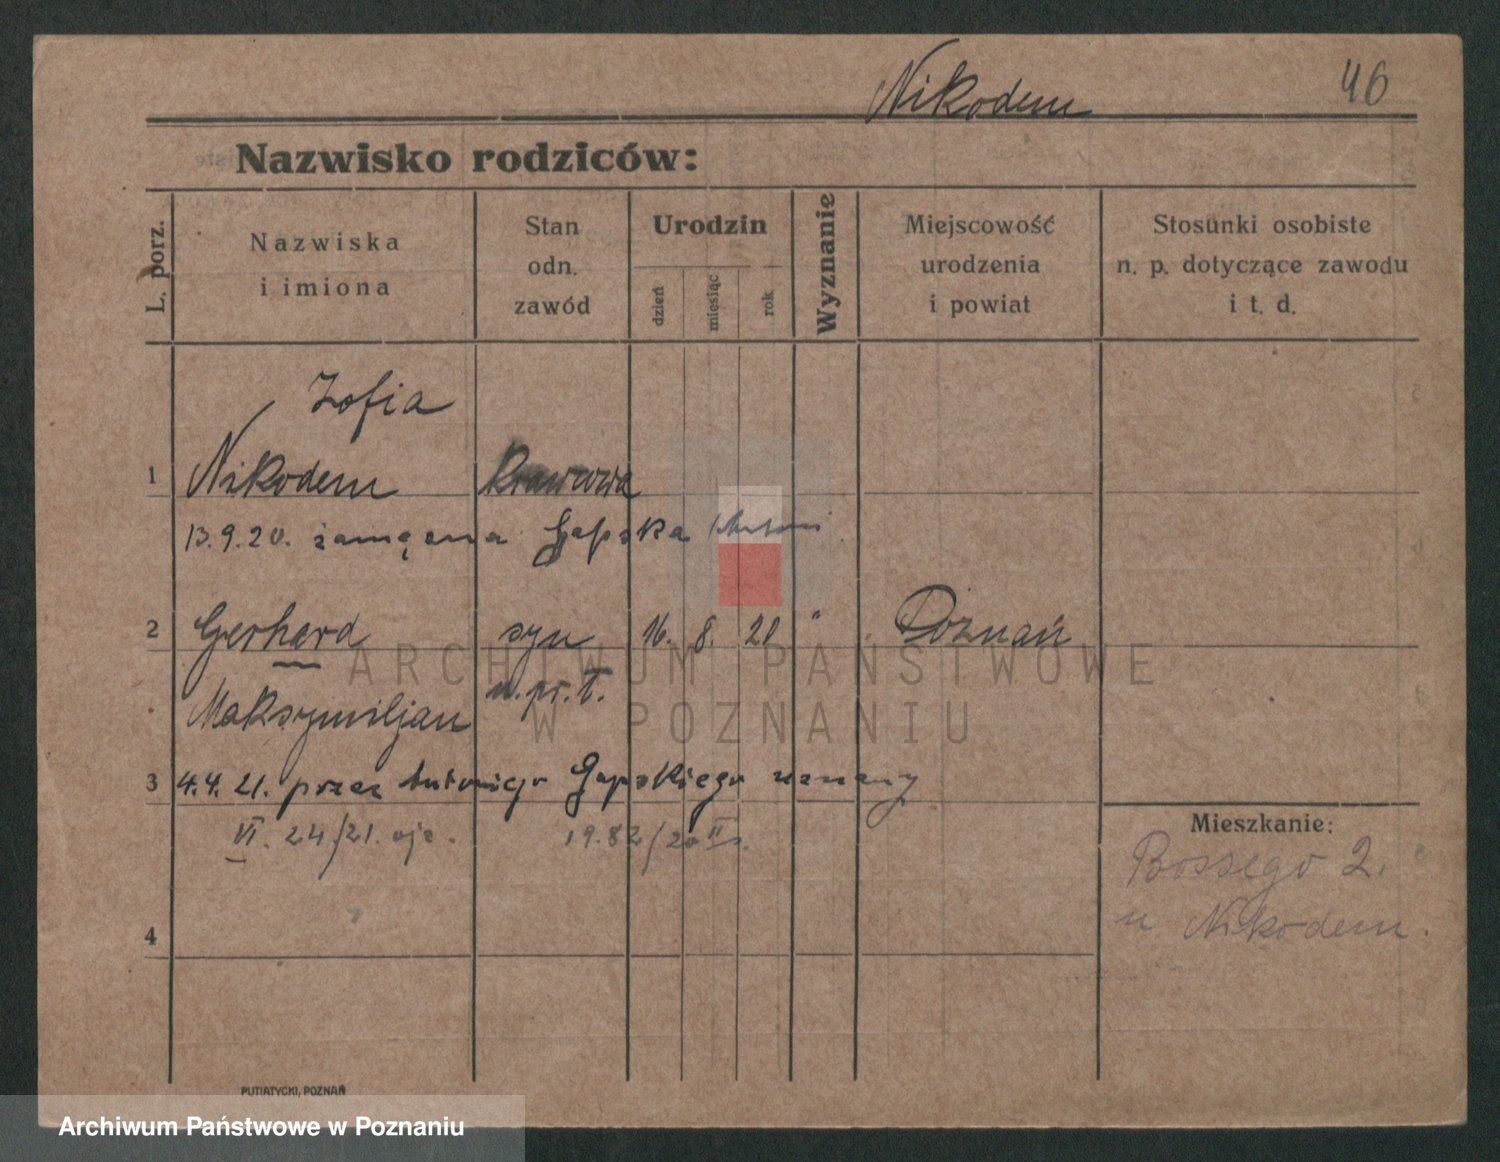 Nikodem 46
Nazwisko rodziców:
L. porz.
Nazwiska
i imiona
Stan
odn.
zawód
Urodzin
dzień
miesiąc
rok
Wyznanie
Miejscowość
urodzenia
i powiat
Stosunki osobiste
n. p. dotyczące zawodu
i t. d.
Zofia
1 Nikodem Krawcowa
13.9.20. zamężna Gapska
2 Gerhard syn 16. 8. 20 " Poznań
Maksymiljan n. pr. T.
3 4.4.21. przez Antoniego Gapskiego uznany
VI. 24/21. 19.82/20
Mieszkanie:
Bossego 2.
u Nikodem.
4
PUTIATYCKI, POZNAŃ
ARCHIWUM PAŃSTWOWE
W POZNANIU
Archiwum Państwowe w Poznaniu